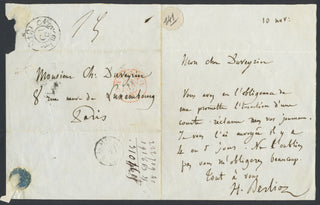 10 nov.
Mon cher Duveyrier
Vous avez eu l'obligeance de
me promettre l'insertion d'une
courte réclame dans vos journaux.
Je vous l'ai envoyée il y a
4 ou 5 jours. Ne l'oubliez
pas vous m'obligerez beaucoup.
Tout à vous
H. Berlioz
Monsieur Ch. Duveyrier
8 rue neuve de Luxembourg
Paris